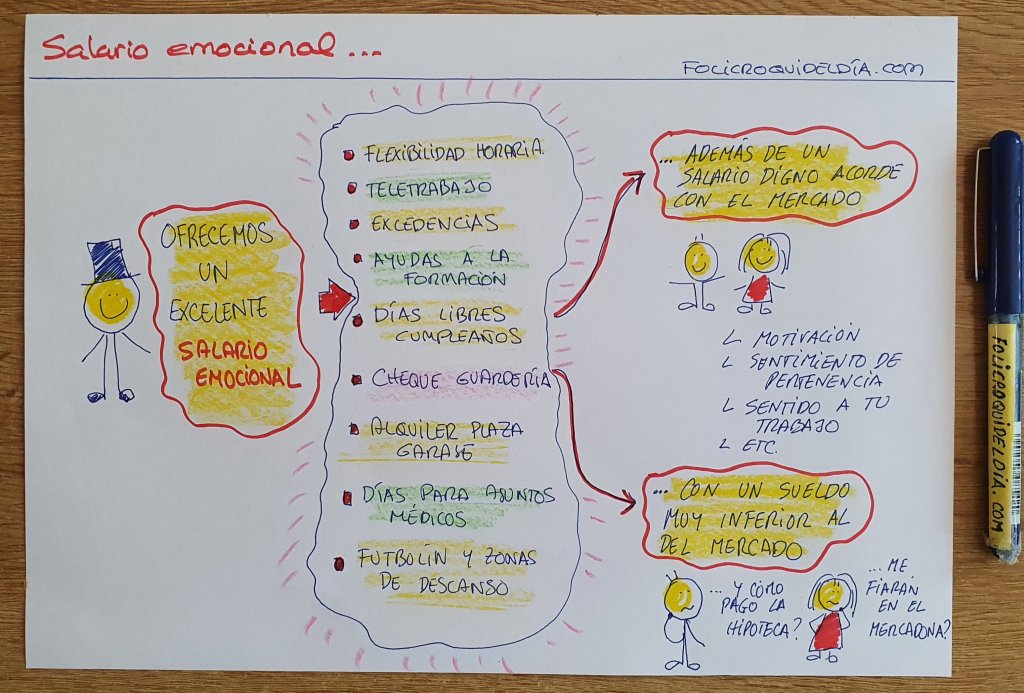 Salario emocional...
FOLICROQUIDELDÍA.COM
OFRECEMOS
UN
EXCELENTE
SALARIO
EMOCIONAL
FLEXIBILIDAD HORARIA.
TELETRABAJO
EXCEDENCIAS
AYUDAS A LA
FORMACIÓN
DÍAS LIBRES
CUMPLEAÑOS
CHEQUE GUARDERÍA
ALQUILER PLAZA
GARAJE
DÍAS PARA ASUNTOS
MÉDICOS
FUTBOLÍN Y ZONAS
DE DESCANSO
... ADEMÁS DE UN
SALARIO DIGNO ACORDE
CON EL MERCADO
MOTIVACIÓN
SENTIMIENTO DE
PERTENENCIA
SENTIDO A TU
TRABAJO
ETC.
... CON UN SUELDO
MUY INFERIOR AL
DEL MERCADO
... Y CÓMO
PAGO LA
HIPOTECA?
...ME
FIARÁN
EN EL
MERCADONA?
FOLICROQUIDELDÍA.COM